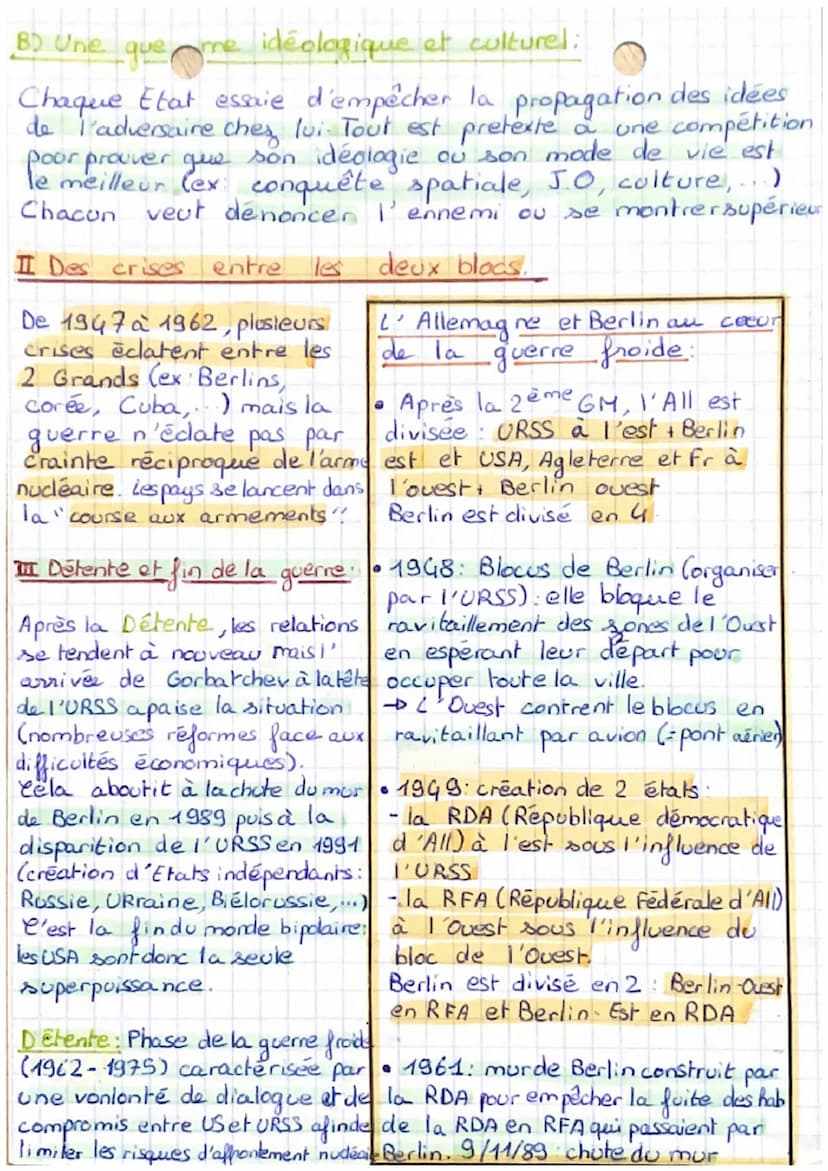 B) Une gue rre idéologique et culturel :
Chaque Etat essaie d'empêcher la propagation des idées
de l'adversaire chez lui. Tout est pretexte à une compétition
pour prouver que son idéologie ou son mode de vie est
le meilleur (ex: conquête spatiale, J.O, culture, ...)
Chacun veut dénoncer l'ennemi ou se montrer supérieur
II Des crises entre les deux blocs.
De 1947 à 1962, plusieurs
crises éclatent entre les
2 Grands (ex: Berlins,
corée, Cuba, ...) mais la
guerre n'éclate pas par
crainte réciproque de l'arme
nucléaire. Les pays se lancent dans
la "course aux armements".
III Détente et fin de la guerre :
Après la Détente, les relations
se tendent à nouveau mais l'
arrivée de Gorbatchev à la tête
de l'URSS apaise la situation
(nombreuses réformes face aux
difficultés économiques).
Cela aboutit à la chute du mur
de Berlin en 1989 puis à la
disparition de l'URSS en 1991
(création d'Etats indépendants :
Russie, Ukraine, Biélorussie, ...)
C'est la fin du monde bipolaire :
les USA sont donc la seule
superpuissance.
Détente : Phase de la guerre froide
(1962-1975) caractérisée par
une vonlonté de dialogue et de
compromis entre US et URSS afin de
limiter les risques d'affrontement nucléaire
L'Allemagne et Berlin au coeur
de la guerre froide :
• Après la 2ème GM, l'All est
divisée : URSS à l'est + Berlin
est et USA, Agleterre et Fr à
l'ouest + Berlin ouest
Berlin est divisé en 4
• 1948 : Blocus de Berlin (organiser
par l'URSS) : elle bloque le
ravitaillement des zones de l'Ouest
en espérant leur départ pour
occuper toute la ville.
→ L'Ouest contrent le blocus en
ravitaillant par avion (= pont aérien)
• 1949 : création de 2 états :
- la RDA (République démocratique
d'All) à l'est sous l'influence de
l'URSS
- la RFA (République Fédérale d'All)
à l'Ouest sous l'influence du
bloc de l'Ouest.
Berlin est divisé en 2 : Berlin-Ouest
en RFA et Berlin-Est en RDA
• 1961 : mur de Berlin construit par
la RDA pour empêcher la fuite des hab
de la RDA en RFA qui passaient par
Berlin. 9/11/89 : chute du mur